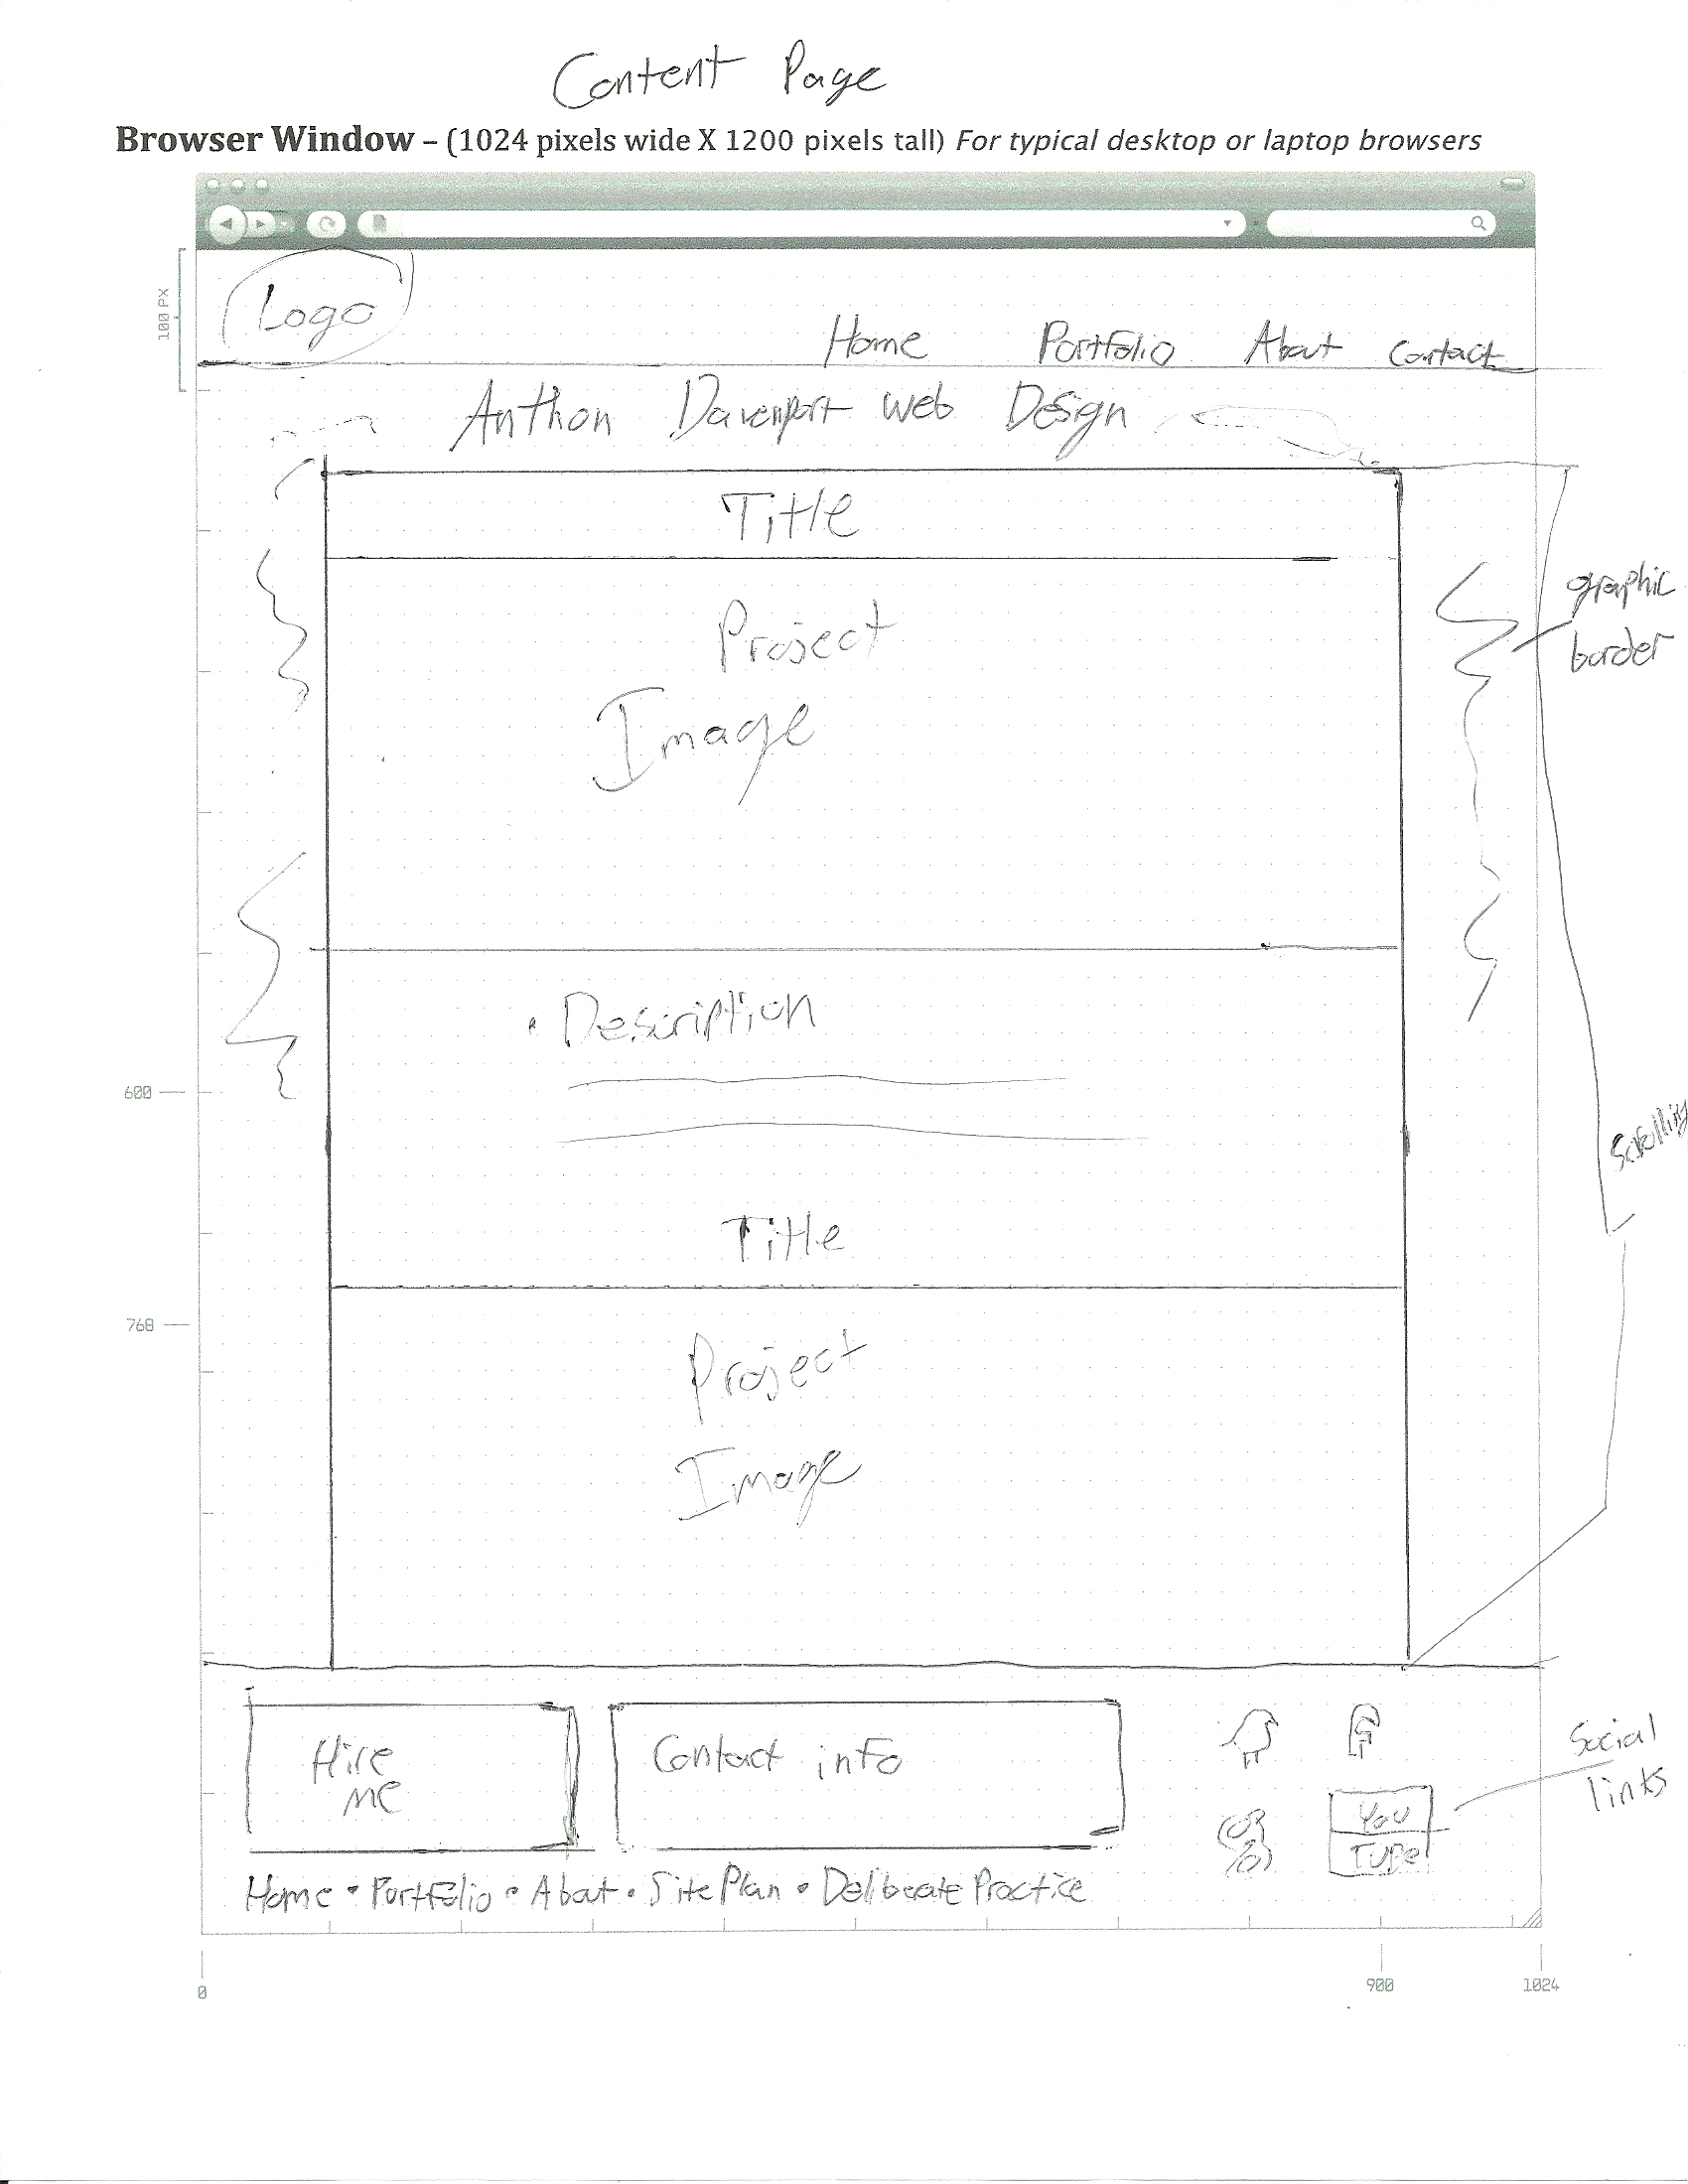 Content Page
Browser Window – (1024 pixels wide X 1200 pixels tall) For typical desktop or laptop browsers
100 PX
Logo
Home Portfolio About Contact
Anthon Davenport Web Design
Title
graphic
border
Project
Image
Description
600
scrolling
Title
760
Project
Image
Hire
me
Contact info
Social
links
You
Tube
Home • Portfolio • About • Site Plan • Delibeate Practice
0 900 1024